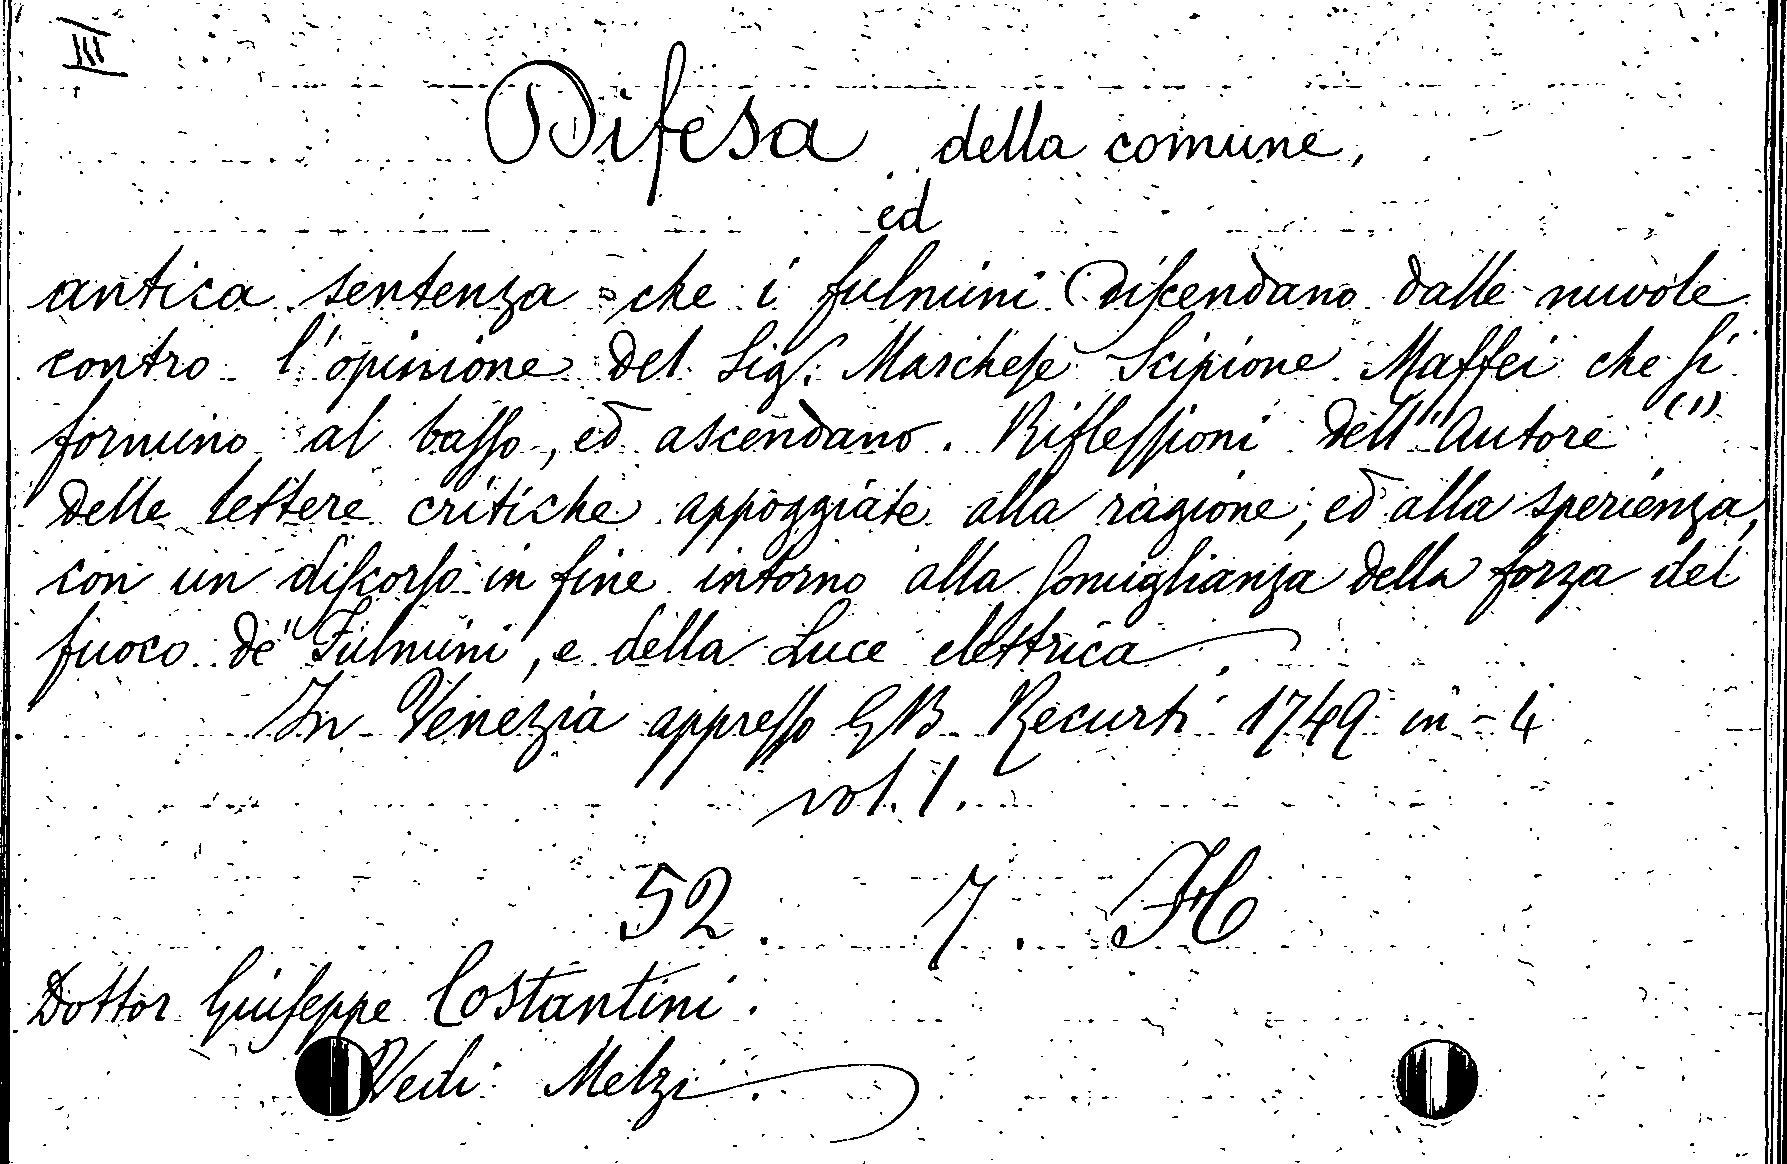 III
Difesa della comune,
ed
antica sentenza che i fulmini discendano dalle nuvole
contro l'opinione del Sigr. Marchese Scipione Maffei che si
formino al basso, ed ascendano. Riflessioni dell'Autore (1)
delle lettere critiche appoggiate alla ragione, ed alla sperienza,
con un discorso in fine intorno alla somiglianza della forza del
fuoco de' Fulmini, e della Luce elettrica.
In Venezia appresso GB Recurti 1749 in-4
vol. 1.
52. 7. H
Dottor Giuseppe Costantini.
Vedi Melzi.